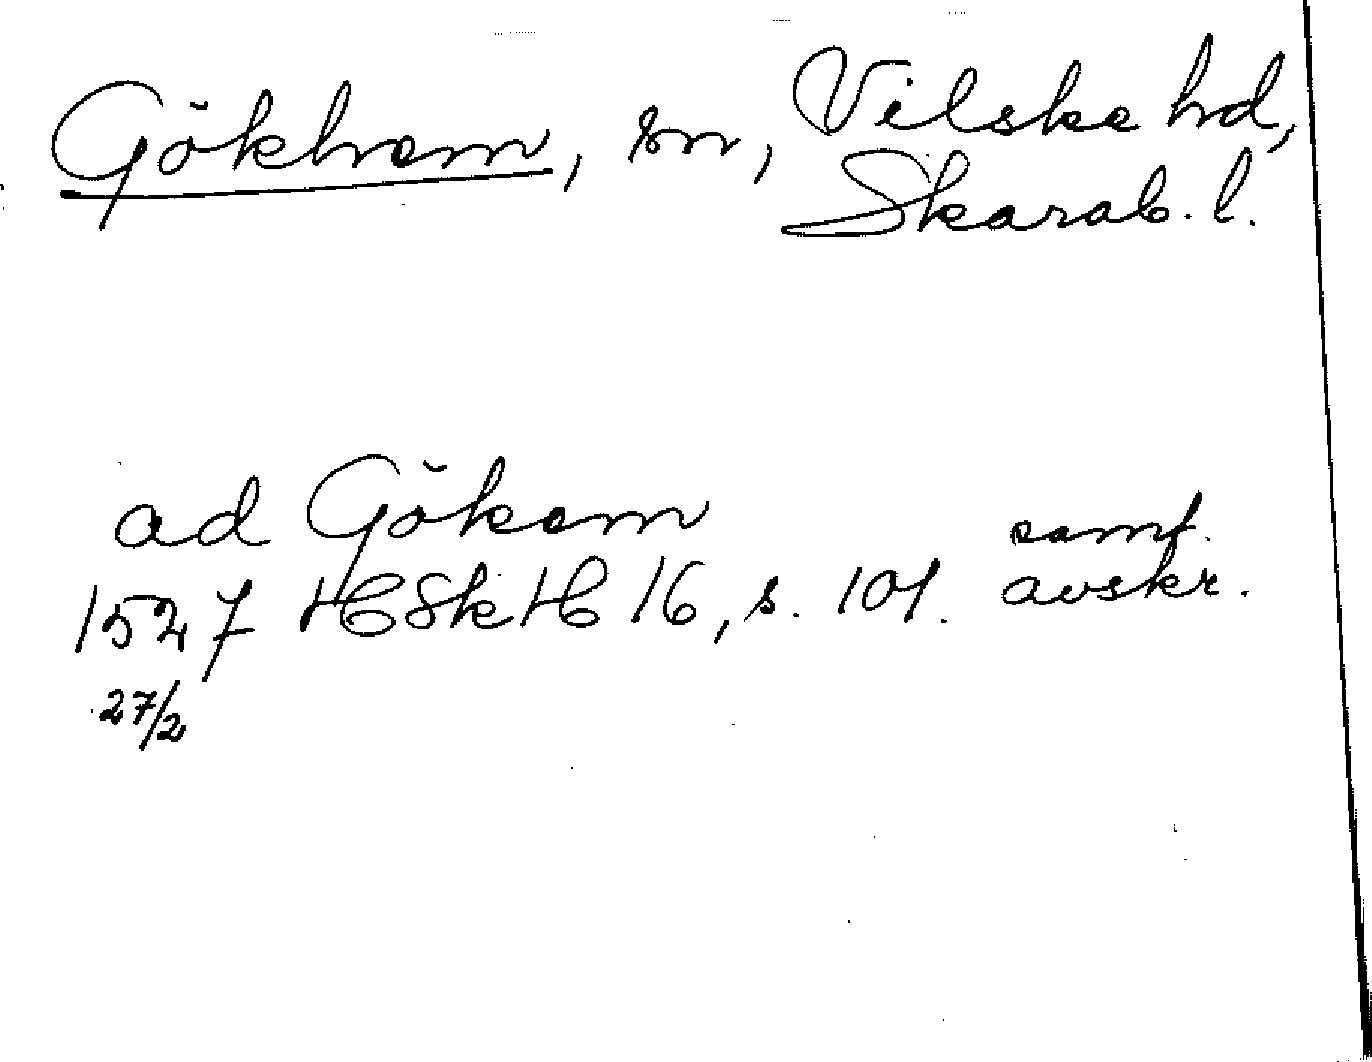 Gökhem, sn, Vilske hd,
Skarab. l.
ad Gökem samt.
1527 HSkH 16, s. 101. avskr.
27/2